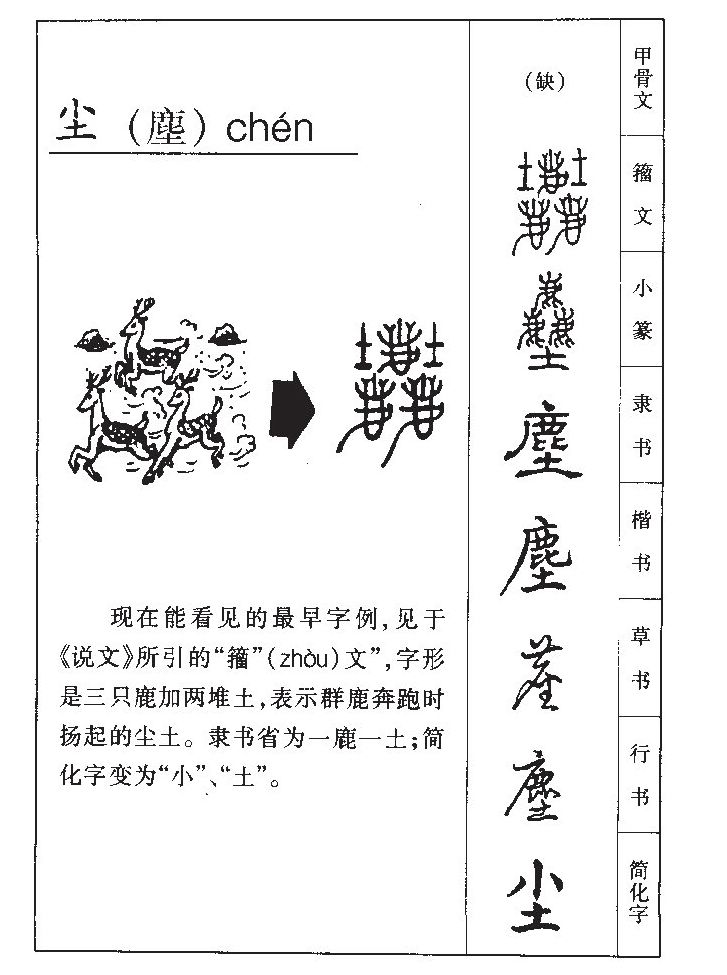 尘（塵）chén
现在能看见的最早字例,见于
《说文》所引的“籀”(zhòu)文”,字形
是三只鹿加两堆土,表示群鹿奔跑时
扬起的尘土。隶书省为一鹿一土;简
化字变为“小”、“土”。
（缺） 甲骨文
籀文
小篆
塵 隶书
塵 楷书
草书
塵 行书
尘 简化字